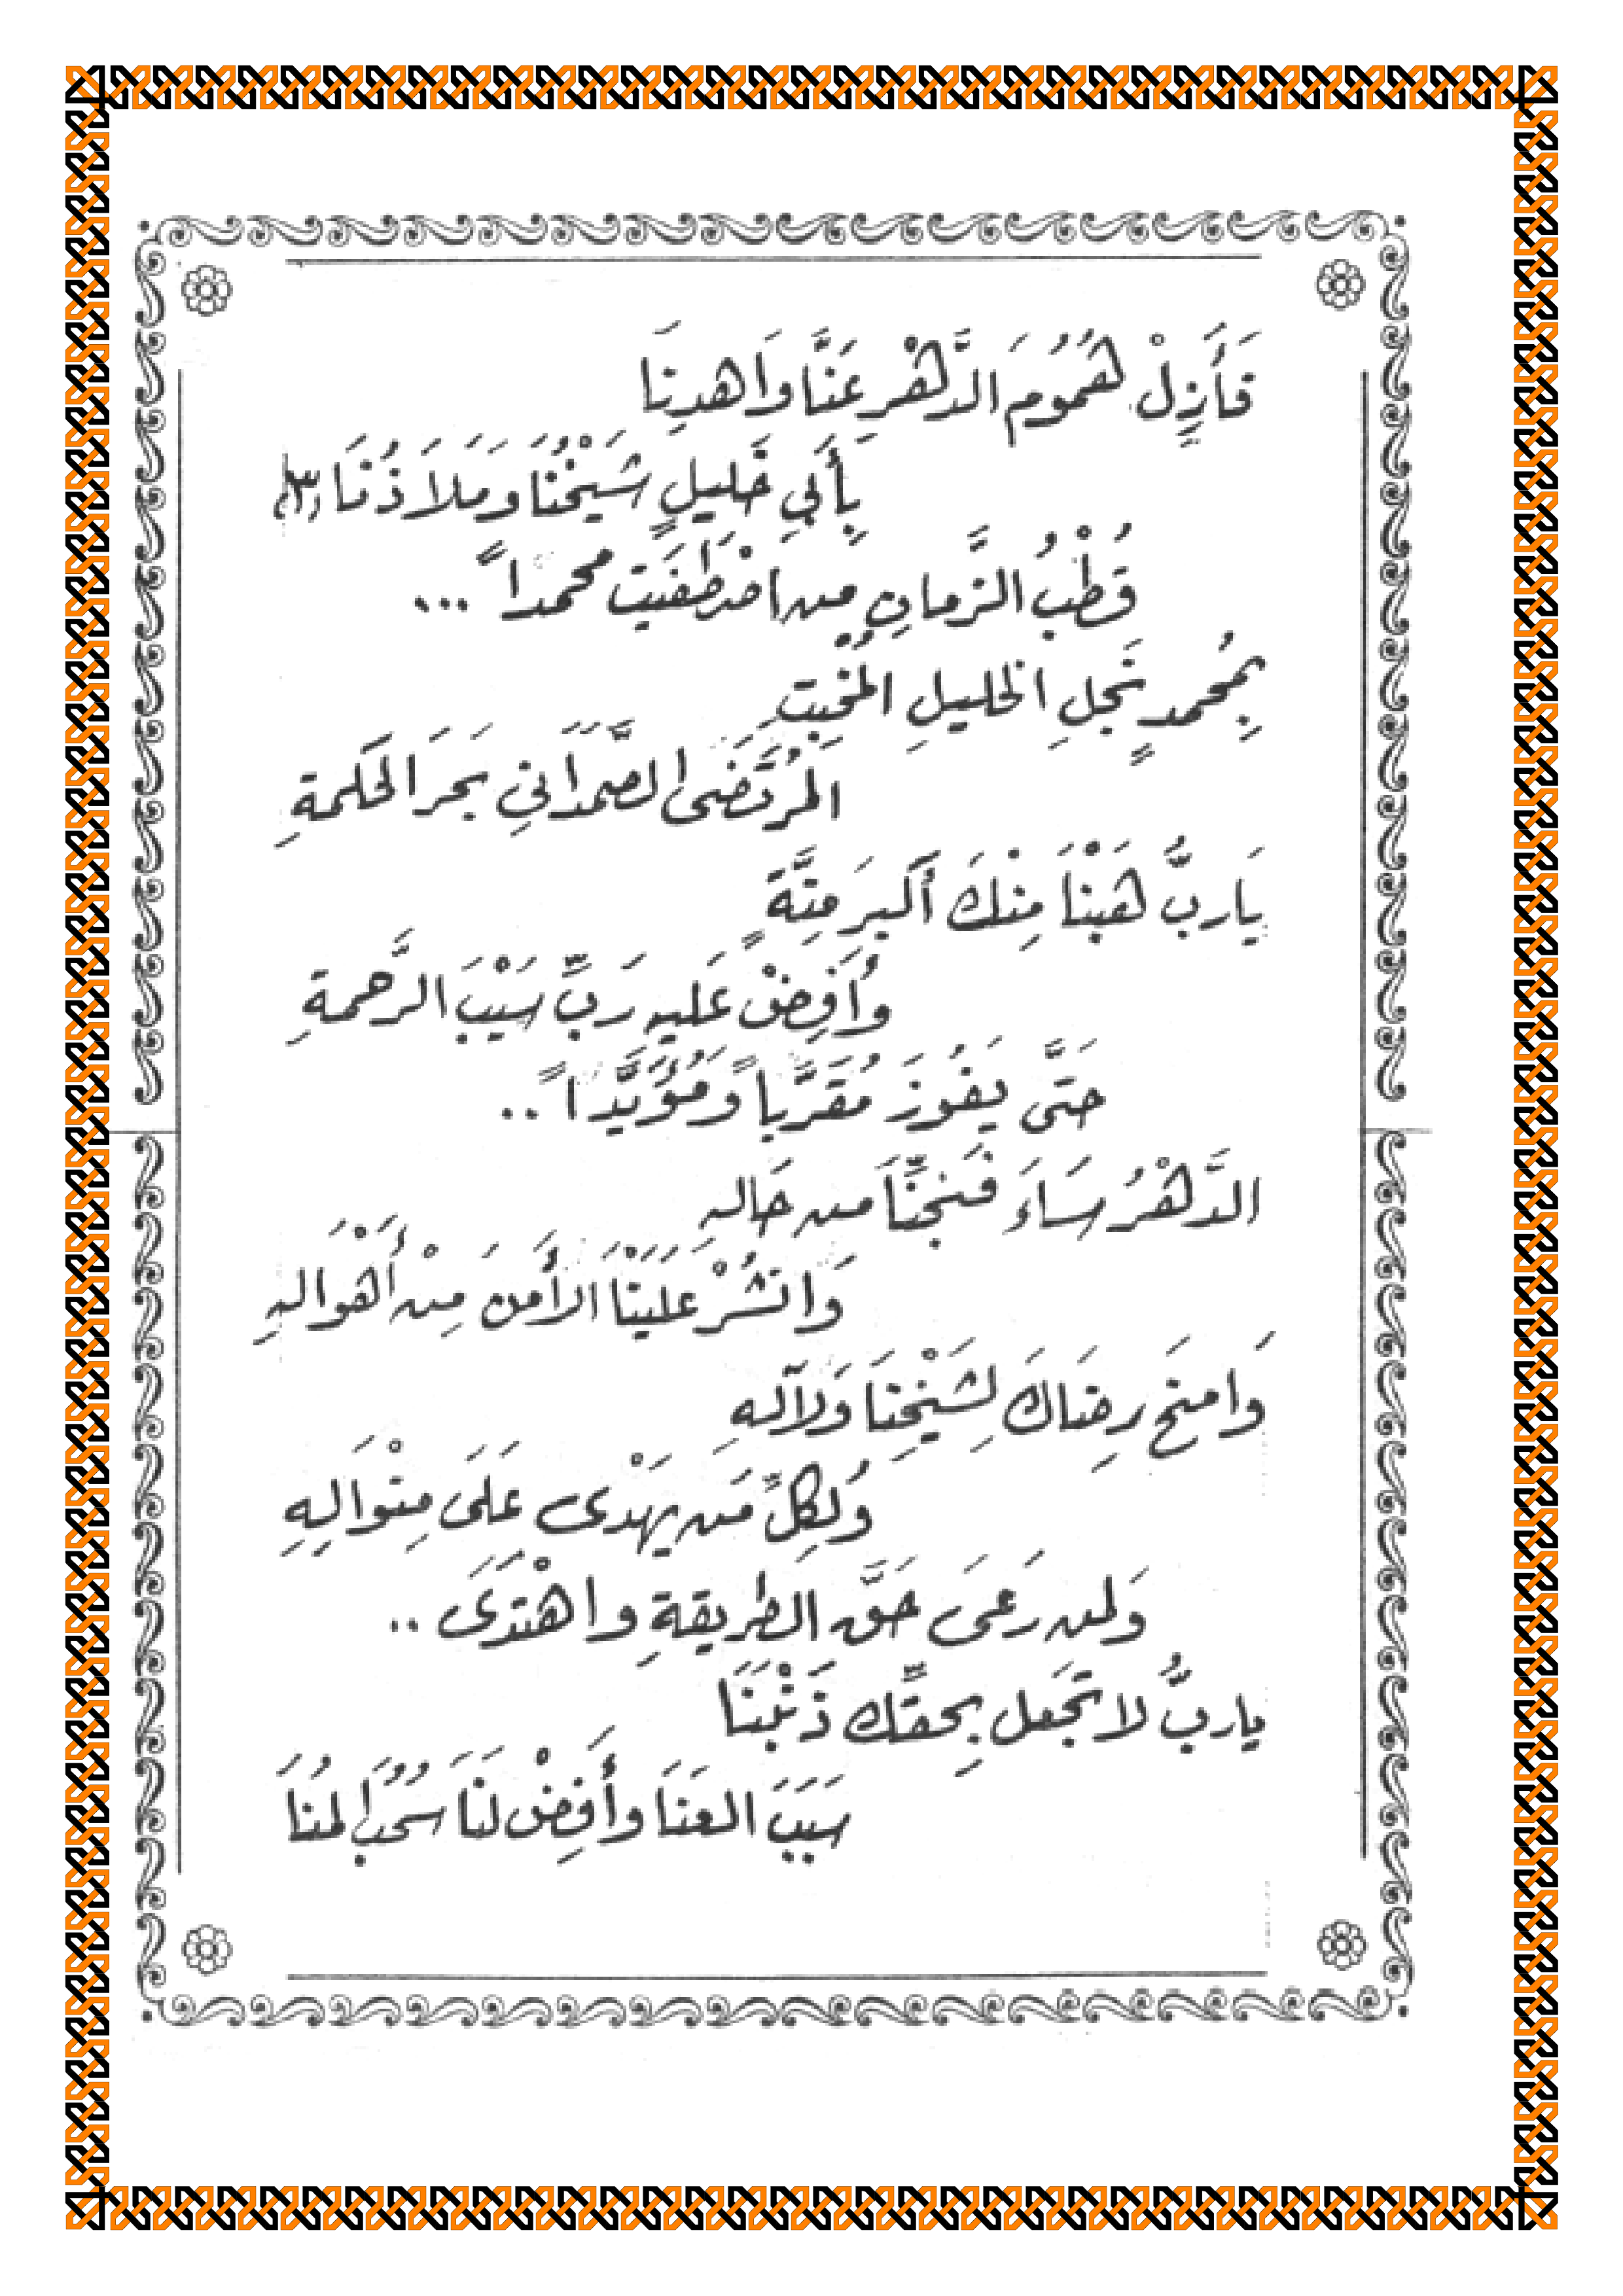 فَأَزِلْ هُمُومَ الدَّهْرِ عَنَّا وَاهدِنَا
بِأَبِي خَلِيلٍ شَيْخُنَا وَمَلَاذُنَا (٣)
قُطْبُ الزَّمانِ من اصْطَفَيتَ محمداً ...
بِمُحمدٍ نَجلِ الخليلِ المُخْبِتِ
المُرتَضَى الصَّمَدَانِي بَحرَ الحَكمةِ
يَاربُّ هَبْنَا مِنْكَ أَكبرَ مِنَّةٍ
وُأَفِضْ عَليهِ رَبِّ سَيْبَ الرَّحمةِ
حَتَّى يَفُوزَ مُقَرَّباً وَمُؤَيَّداً ..
الدَّهْرُ سَاءَ فَنَجِّنَا من حَالهِ
وَانشُرْ عَلَيْنَا الأَمنَ مِنْ أَهْوَالهِ
وَامنَح رِضَاكَ لِشَيْخِنَا وَلآلهِ
وُلِكِلِّ مَن يهْدَى عَلَى مِنْوَالِهِ
وَلمن رَعَى حَقَّ الطريقةِ واهْتَدَى ..
ياربُّ لا تجَعل بِحقِّك ذَنْبَنَا
سَبَبَ العَنَا وأَفِضْ لنَا سُحُبَ المُنَا